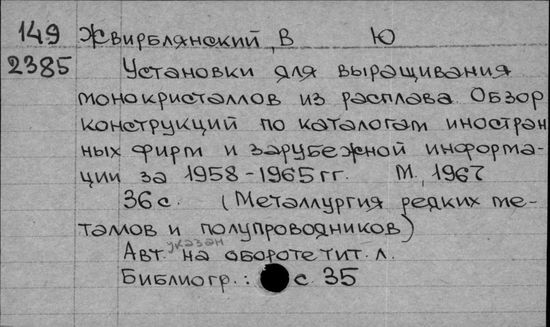 149 Жвирблянский, В Ю
2385 Установки для выращивания
монокристаллов из расплава. Обзор
конструкций по каталогам иностран
ных фирм и зарубежной информа-
ции за 1958-1965 гг. М., 1967
36 с. (Металлургия редких ме-
таллов и полупроводников)
Авт. указан на обороте тит. л.
Библиогр.: с. 35